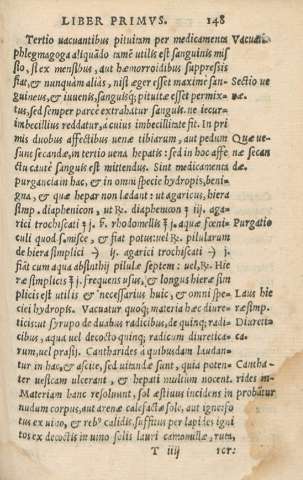 LIBER PRIMVS. 148
Tertio vacuantibus pituitam per medicamenta
Vacuati
phlegmagoga aliquãdo tamẽ utilis est sanguinis mis
sio, si ex mensibus, aut hæmorroidibus suppressis
fiat, & nunquàm aliàs, nisi æger esset maximè san-
Sectio ve
guineus, & iuuenis, sanguisq; pituitæ esset permix-
næ.
tus, sed semper parcè extrahatur sanguis. ne iecur
imbecillius reddatur, à cuius imbecillitate fit. In pri
mis duobus affectibus uenæ tibiarum, aut pedum
Quæ ve-
sunt secandæ, in tertio uena hepatis: sed in hoc affe
næ secan
ctu cautè sanguis est mittendus. Sint medicamenta
dæ.
purgantia in hac, & in omni specie hydropis, beni-
gna, & quæ hepar non lædant: ut agaricus, hiera
simp. diaphenicon, ut ℞. diaphenicon ʒ iij. aga-
rici trochiscati ʒ j. ß. rhodomellis ℥ j. aquæ fœni-
Purgatio
culi quod s. misce, & fiat potus: uel ℞. pilularum
de hiera simplici ℈ ij. agarici trochiscati ℈ j.
fiāt cum aqua absinthij pilulæ septem: uel, ℞. Hie
ræ simplicis ℥ j. frequens usus, & longus hieræ sim
plicis est utilis, & necessarius huic, & omni spe-
Laus hie
ciei hydropis. Vacuatur quoq; materia hæc diure-
ræ simp.
ticis: ut syrupo de duabus radicibus, de quinq; radi-
Diuretica
cibus, aqua uel decocto quinq; radicum diuretica-
ca.
rum, uel prasij. Cantharides a quibusdam laudan-
tur in hac, & ascite, sed uitandæ sunt, quia poten-
Cantha-
ter uesicam ulcerant, & hepati multum nocent.
rides im-
Materiam hanc resoluunt, sol æstiuus incidens in
probãtur
nudum corpus, aut arenæ calefactæ sole, aut igne: so
tus ex uino, & reb⁹ calidis, suffitus per lapides igni
tos ex decoctis in uino solis lauri camomillæ, ruta,
T iiij